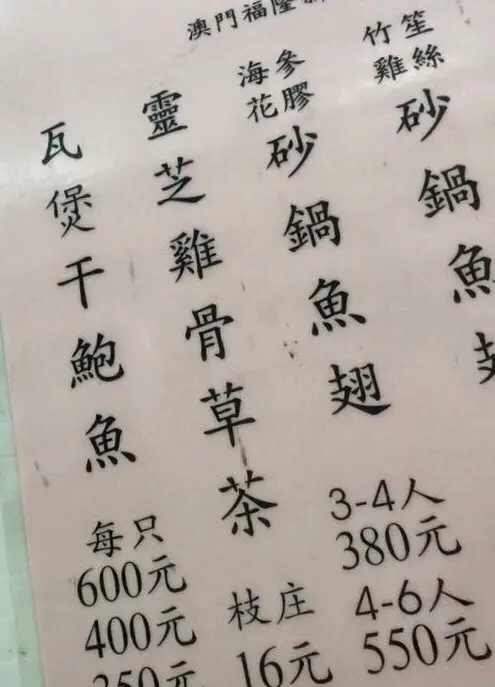 澳門福隆
竹笙
雞絲
砂鍋魚
海參
花膠
砂鍋魚翅
3-4人
380元
4-6人
550元
靈芝雞骨草茶
枝庄
16元
瓦煲干鮑魚
每只
600元
400元
350元